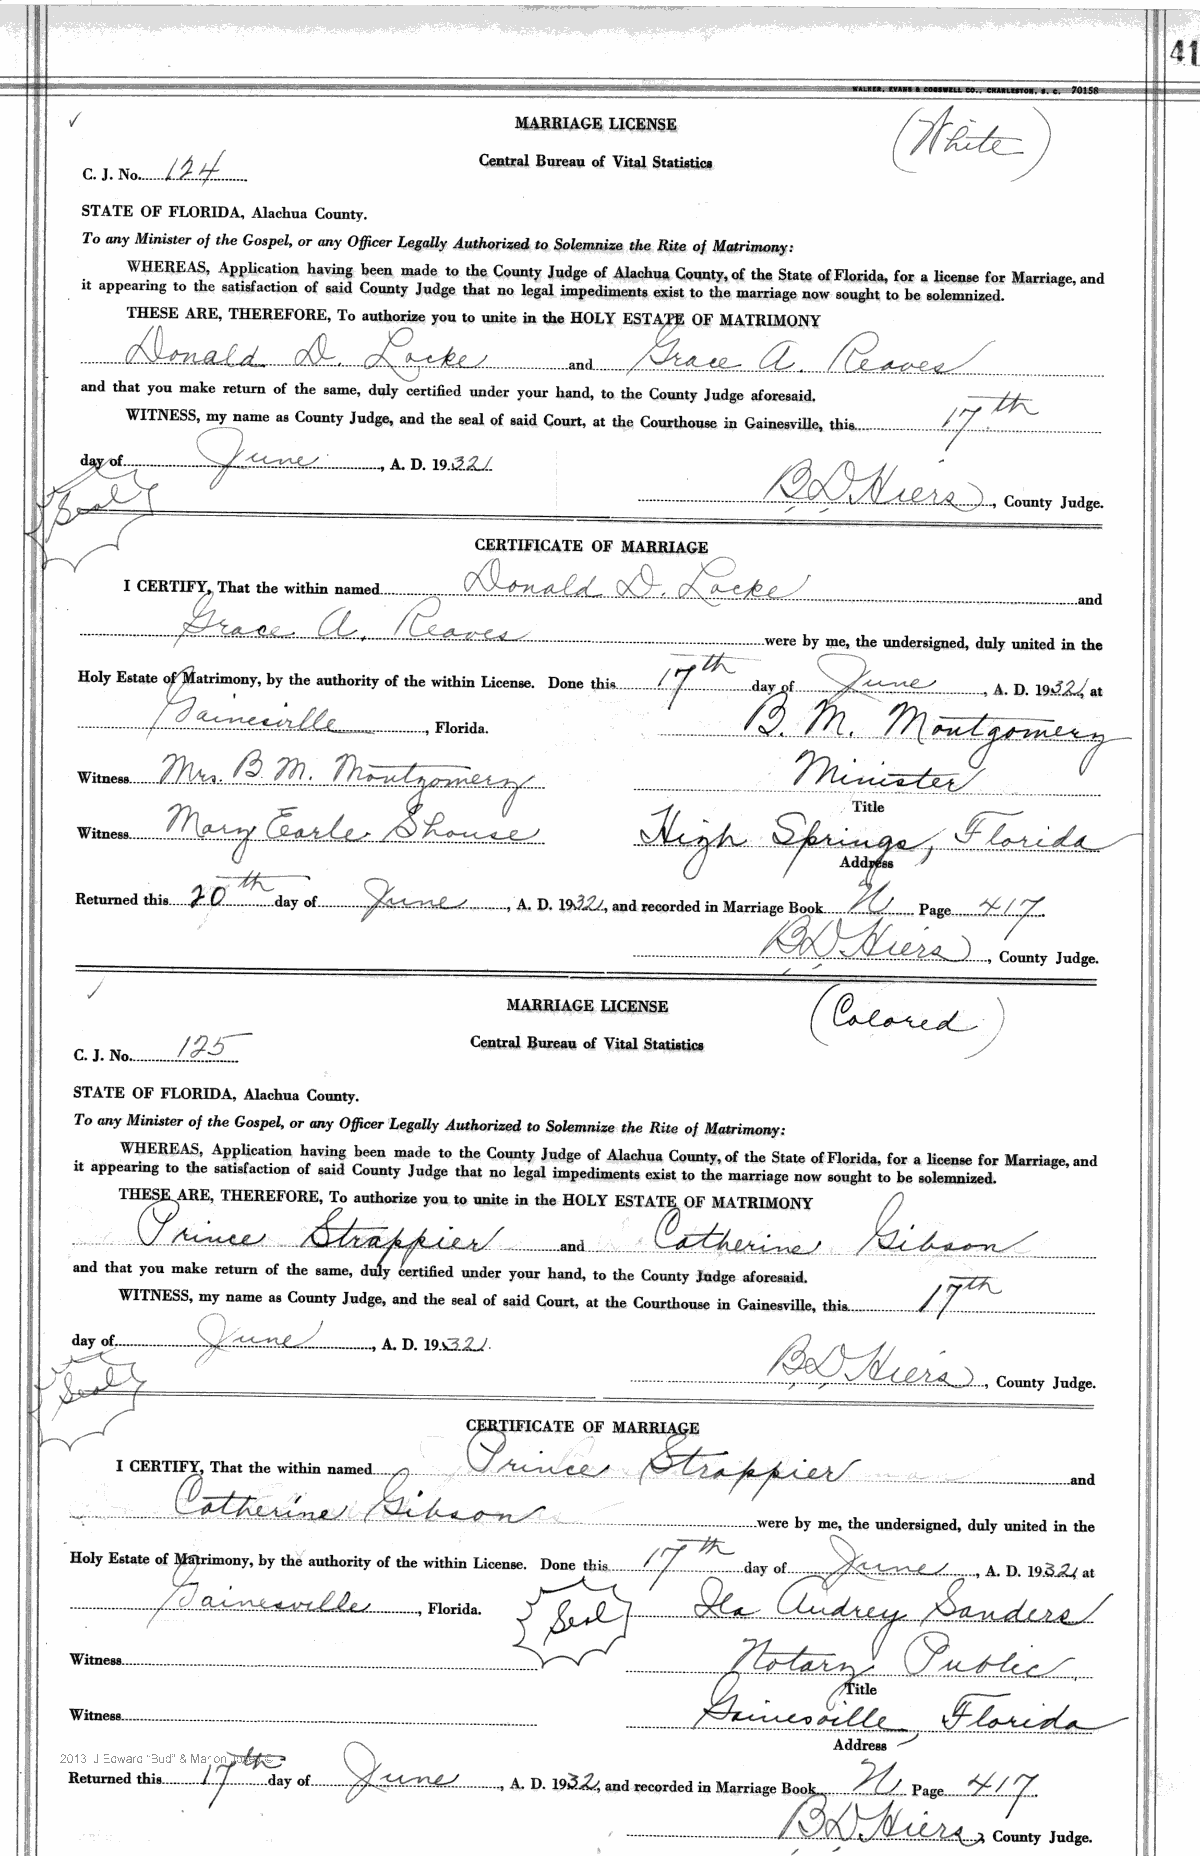 41
WALKER, EVANS & COGSWELL CO., CHARLESTON, S. C. 70158
✓ MARRIAGE LICENSE (White)
Central Bureau of Vital Statistics
C. J. No. 124
STATE OF FLORIDA, Alachua County.
To any Minister of the Gospel, or any Officer Legally Authorized to Solemnize the Rite of Matrimony:
WHEREAS, Application having been made to the County Judge of Alachua County, of the State of Florida, for a license for Marriage, and
it appearing to the satisfaction of said County Judge that no legal impediments exist to the marriage now sought to be solemnized.
THESE ARE, THEREFORE, To authorize you to unite in the HOLY ESTATE OF MATRIMONY
Donald D. Locke and Grace A. Reaves
and that you make return of the same, duly certified under your hand, to the County Judge aforesaid.
WITNESS, my name as County Judge, and the seal of said Court, at the Courthouse in Gainesville, this 17th
day of June, A. D. 1932.
Seal B D Hiers, County Judge.
CERTIFICATE OF MARRIAGE
I CERTIFY, That the within named Donald D. Locke and
Grace A. Reaves were by me, the undersigned, duly united in the
Holy Estate of Matrimony, by the authority of the within License. Done this 17th day of June, A. D. 1932, at
Gainesville, Florida. B. M. Montgomery
Witness Mrs. B. M. Montgomery Minister
Title
Witness Mary Earle Shouse High Springs, Florida
Address
Returned this 20th day of June, A. D. 1932, and recorded in Marriage Book N Page 417.
B D Hiers, County Judge.
✓ MARRIAGE LICENSE (Colored)
Central Bureau of Vital Statistics
C. J. No. 125
STATE OF FLORIDA, Alachua County.
To any Minister of the Gospel, or any Officer Legally Authorized to Solemnize the Rite of Matrimony:
WHEREAS, Application having been made to the County Judge of Alachua County, of the State of Florida, for a license for Marriage, and
it appearing to the satisfaction of said County Judge that no legal impediments exist to the marriage now sought to be solemnized.
THESE ARE, THEREFORE, To authorize you to unite in the HOLY ESTATE OF MATRIMONY
Prince Strappier and Catherine Gibson
and that you make return of the same, duly certified under your hand, to the County Judge aforesaid.
WITNESS, my name as County Judge, and the seal of said Court, at the Courthouse in Gainesville, this 17th
day of June, A. D. 1932.
Seal B D Hiers, County Judge.
CERTIFICATE OF MARRIAGE
I CERTIFY, That the within named Prince Strappier and
Catherine Gibson were by me, the undersigned, duly united in the
Holy Estate of Matrimony, by the authority of the within License. Done this 17th day of June, A. D. 1932, at
Gainesville, Florida. Seal Ila Audrey Sanders
Witness Notary Public
Title
Witness Gainesville, Florida
Address
2013 J Edward "Bud" & Marion
Returned this 17th day of June, A. D. 1932, and recorded in Marriage Book N Page 417.
B D Hiers, County Judge.